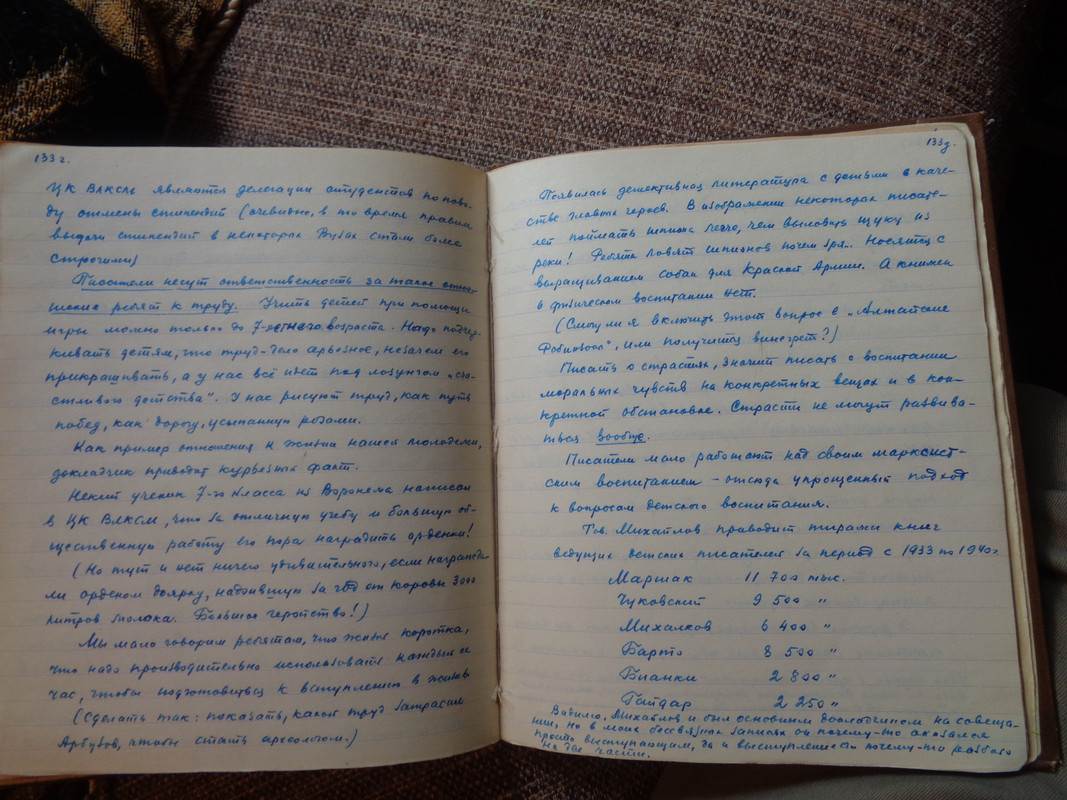 133 г.
ЦК ВЛКСМ являются делегации студентов по пово-
ду отмены стипендий (очевидно, в то время правила
выдачи стипендий в некоторых Вузах стали более
строгими)
Писатели несут ответственность за такое отно-
шение ребят к труду. Учить детей при помощи
игры можно только до 7-летнего возраста. Надо подчер-
кивать детям, что труд-дело серьезное, незачем его
прикрашивать, а у нас всё идет под лозунгом „сча-
стливого детства". У нас рисуют труд, как путь
побед, как дорогу, усыпанную розами.
Как пример отношения к жизни нашей молодежи,
докладчик приводит курьезный факт.
Некий ученик 7-го класса из Воронежа написал
в ЦК ВЛКСМ, что за отличную учебу и большую об-
щественную работу его пора наградить орденом!
(Но тут и нет ничего удивительного, если награжда-
ли орденом доярку, надоившую за год от коровы 3000
литров молока. Большое геройство!)
Мы мало говорим ребятам, что жизнь коротка,
что надо производительно использовать каждый
час, чтобы подготовиться к вступлению в жизнь
(Сделать так: показать, какой труд затратил
Арбузов, чтобы стать археологом.)
133д.
Появилась детективная литература с детьми в каче-
стве главных героев. В изображении некоторых писате-
лей поймать шпиона легче, чем выловить щуку из
реки! Ребята ловят шпионов почем зря... Носятся с
выращиванием собак для Красной Армии. А книжек
о физическом воспитании нет.
(Смогу ли я включить этот вопрос в „Алтайские
Робинзоны", или получится винегрет?)
Писать о страстях, значит писать о воспитании
моральных чувств на конкретных вещах и в кон-
кретной обстановке. Страсти не могут развива-
ться вообще.
Писатели мало работают над своим марксист-
ским воспитанием – отсюда упрощенный подход
к вопросам детского воспитания.
Тов. Михайлов приводит тиражи книг
ведущих детских писателей за период с 1933 по 1940 г.
Маршак 11 700 тыс.
Чуковский 9 500 "
Михалков 6 400 "
Барто 8 500 "
Бианки 2 800 "
Гайдар 2 250 "
Видимо, Михайлов и был основным докладчиком на совеща-
нии, но в моих бессвязных записях он почему-то оказался
просто выступающим, да и выступление его почему-то разбито
на две части.